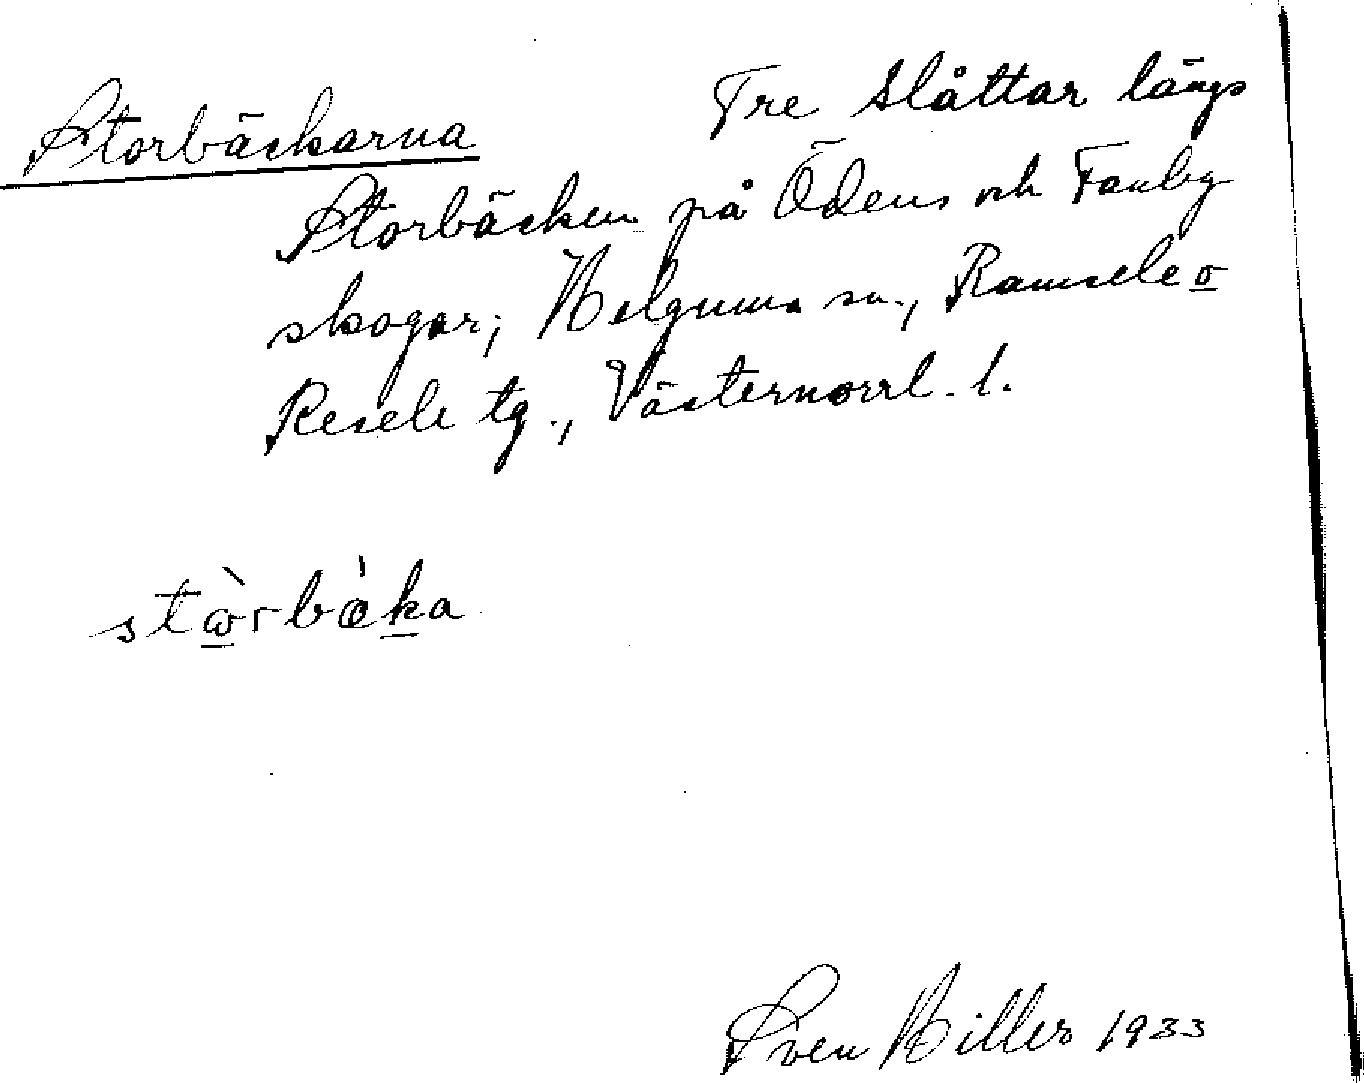 Storbäckarna
Tre slåttar längs
Storbäcken på Ödens och Fanby
skogar; Helgums sn., Ramsele o
Resele tg., Västernorrl. l.
stɷ̀rbɑ̀ka
Sven Hillert 1933